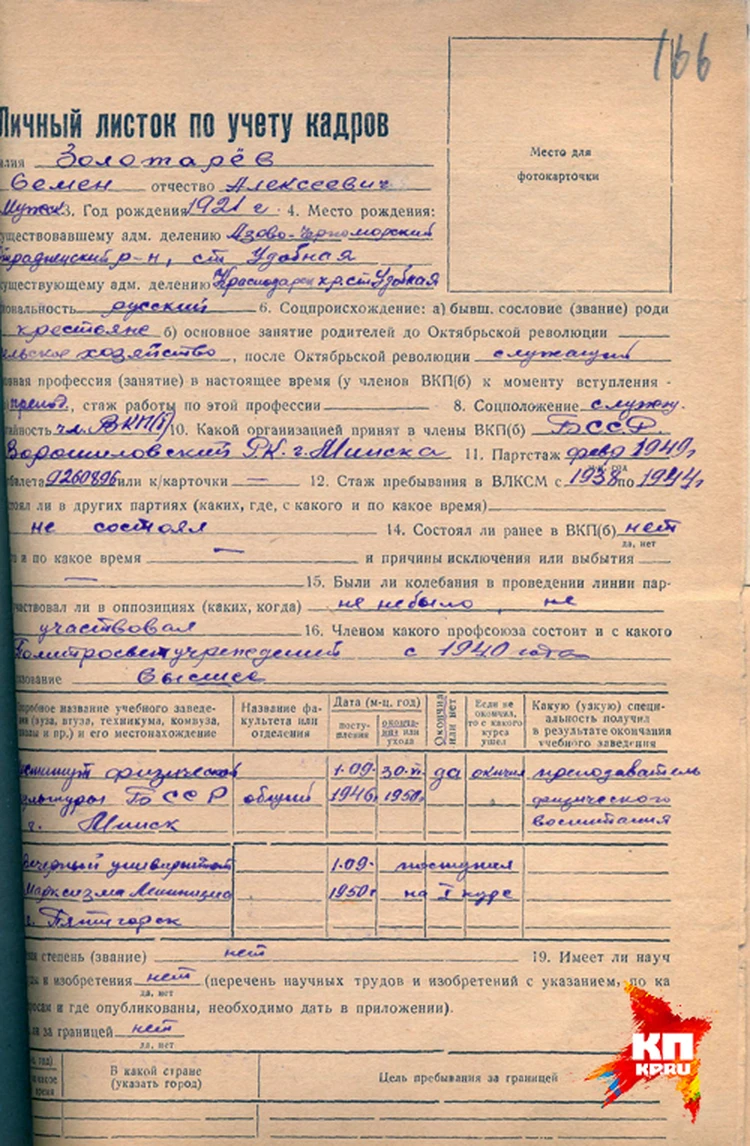 166
Личный листок по учету кадров
Место для
фотокарточки
илия Золотарёв
Семен отчество Алексеевич
Мужск 3. Год рождения 1921 г. 4. Место рождения:
уществовавшему адм. делению Азово-Черноморский
р-н, ст Удобная
существующему адм. делению Краснодарск кр. ст Удобная
ональность русский 6. Соцпроисхождение: а) бывш. сословие (звание) роди
крестьяне б) основное занятие родителей до Октябрьской революции
ельское хозяйство, после Октябрьской революции служащий
овная профессия (занятие) в настоящее время (у членов ВКП(б) к моменту вступления -
препод., стаж работы по этой профессии 8. Соцположение служ.
тийность чл. ВКП(б) 10. Какой организацией принят в члены ВКП(б) БССР
Ворошиловский РК. г. Минска 11. Партстаж февр 1949г
билета 9260896 или к/карточки — 12. Стаж пребывания в ВЛКСМ с 1938 по 1944г
тоял ли в других партиях (каких, где, с какого и по какое время)
не состоял 14. Состоял ли ранее в ВКП(б) нет
да, нет
о и по какое время — и причины исключения или выбытия
— 15. Были ли колебания в проведении линии пар-
частвовал ли в оппозициях (каких, когда) не небыло, не
участвовал 16. Членом какого профсоюза состоит и с какого
Политпросветучреждений с 1940 года
азование Высшее
одробное название учебного заведе-
ния (вуза, втуза, техникума, комвуза,
олы и пр.) и его местонахождение
Название фа-
культета или
отделения
Дата (м-ц, год)
посту-
пления
оконча-
ния или
ухода
Окончил
или нет
Если не
окончил,
то с какого
курса
ушел
Какую (узкую) специ-
альность получил
в результате окончания
учебного заведения
нститут физической 1.09. 30. да окончил преподаватель
ультуры БССР общий 1946г. 1950г. физического
г. Минск воспитания
ечерный университет 1.09. поступил
Марксизма Ленинизма 1950г на I курс
г. Пятигорск
ая степень (звание) нет 19. Имеет ли науч
ды и изобретения нет (перечень научных трудов и изобретений с указанием, по ка
да, нет
росам и где опубликованы, необходимо дать в приложении).
ли за границей нет
да, нет
год)
какое
время
В какой стране
(указать город)
Цель пребывания за границей
КП
KP.RU